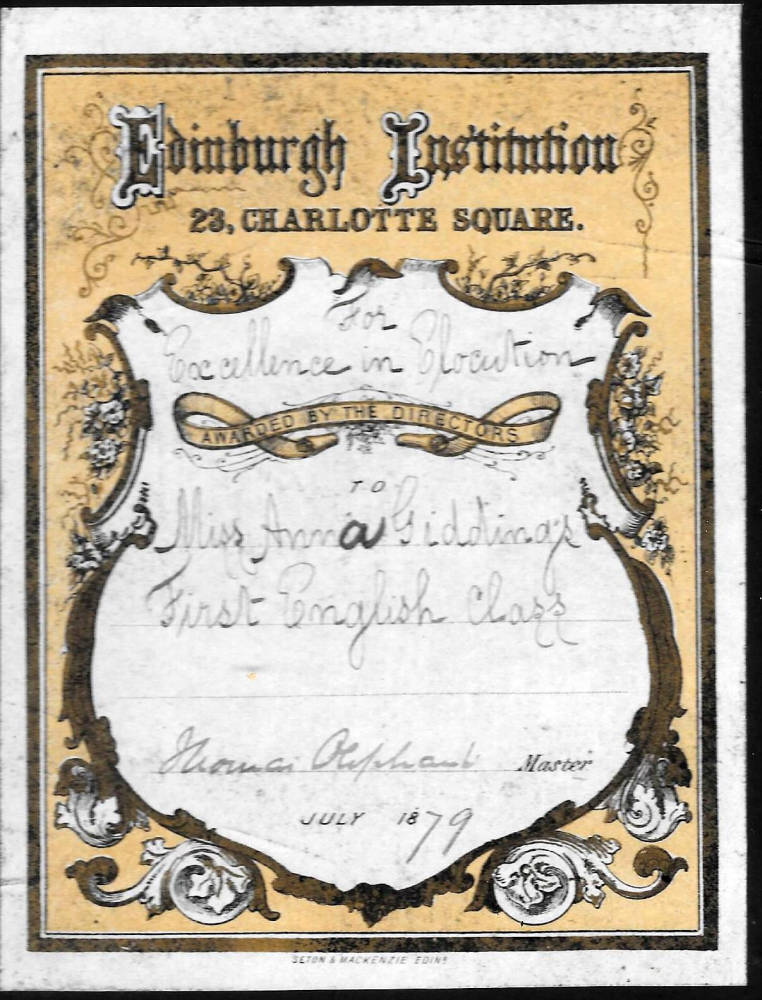 Edinburgh Institution
23, CHARLOTTE SQUARE.
For
Excellence in Elocution
AWARDED BY THE DIRECTORS
TO
Miss Anna Giddings
First English Class
Thomas Oliphant Master
JULY 1879
SETON & MACKENZIE EDINR